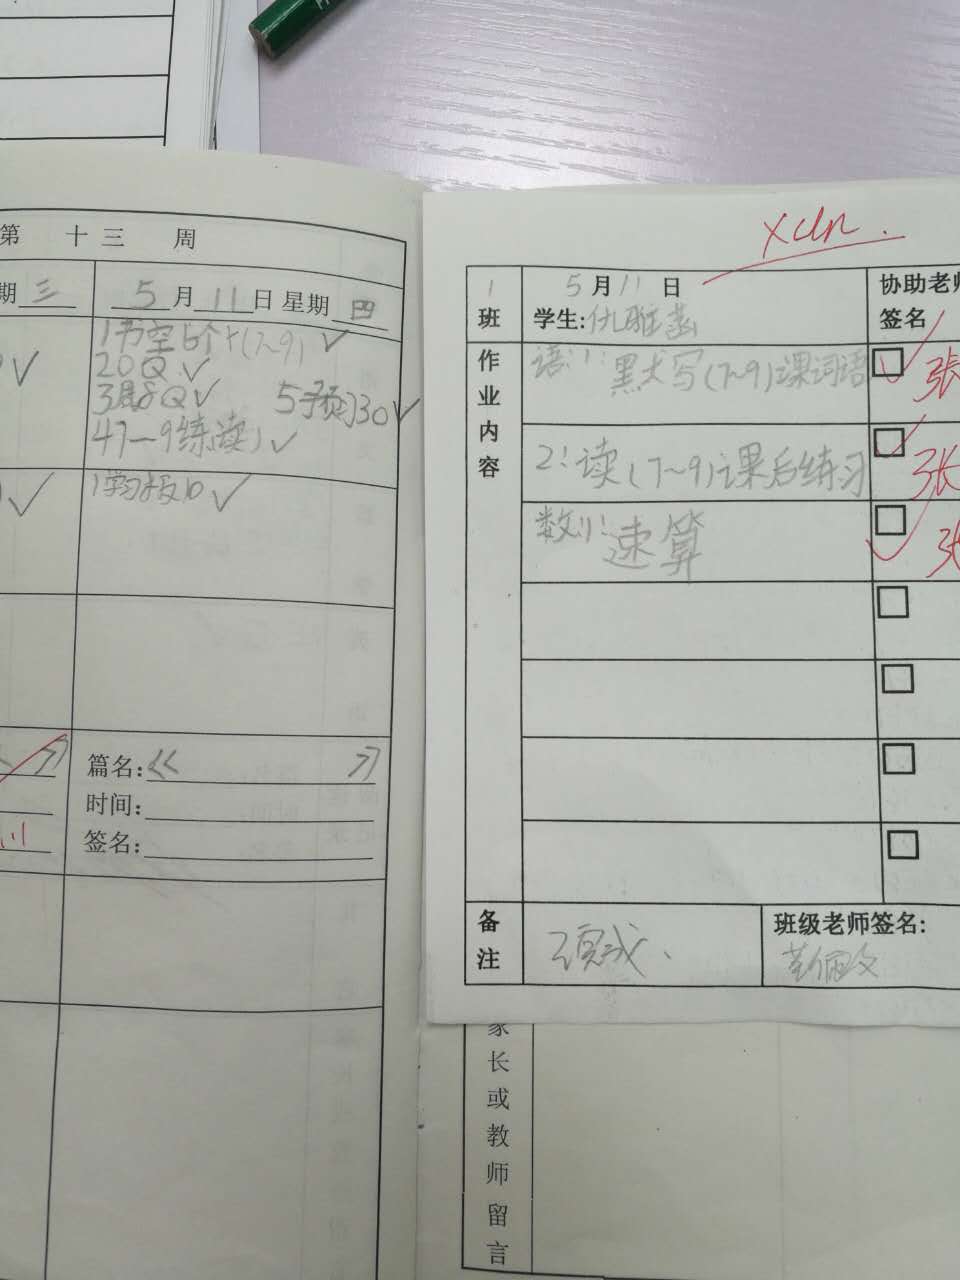 第 十三 周
期 三
5 月 11 日 星期 四
1书空6个+(7~9) ✓
2OQ ✓
5预习30 ✓
47-9练读) ✓
1学习报10 ✓
篇名:《 》
时间:
签名:
1 班
5月11日
学生:
协助老师
签名
作业内容
语:1: 默写(7~9)课词语
张
2:读(7~9)课后练习
张
数:1:速算
张
备注
班级老师签名:
家长或教师留言